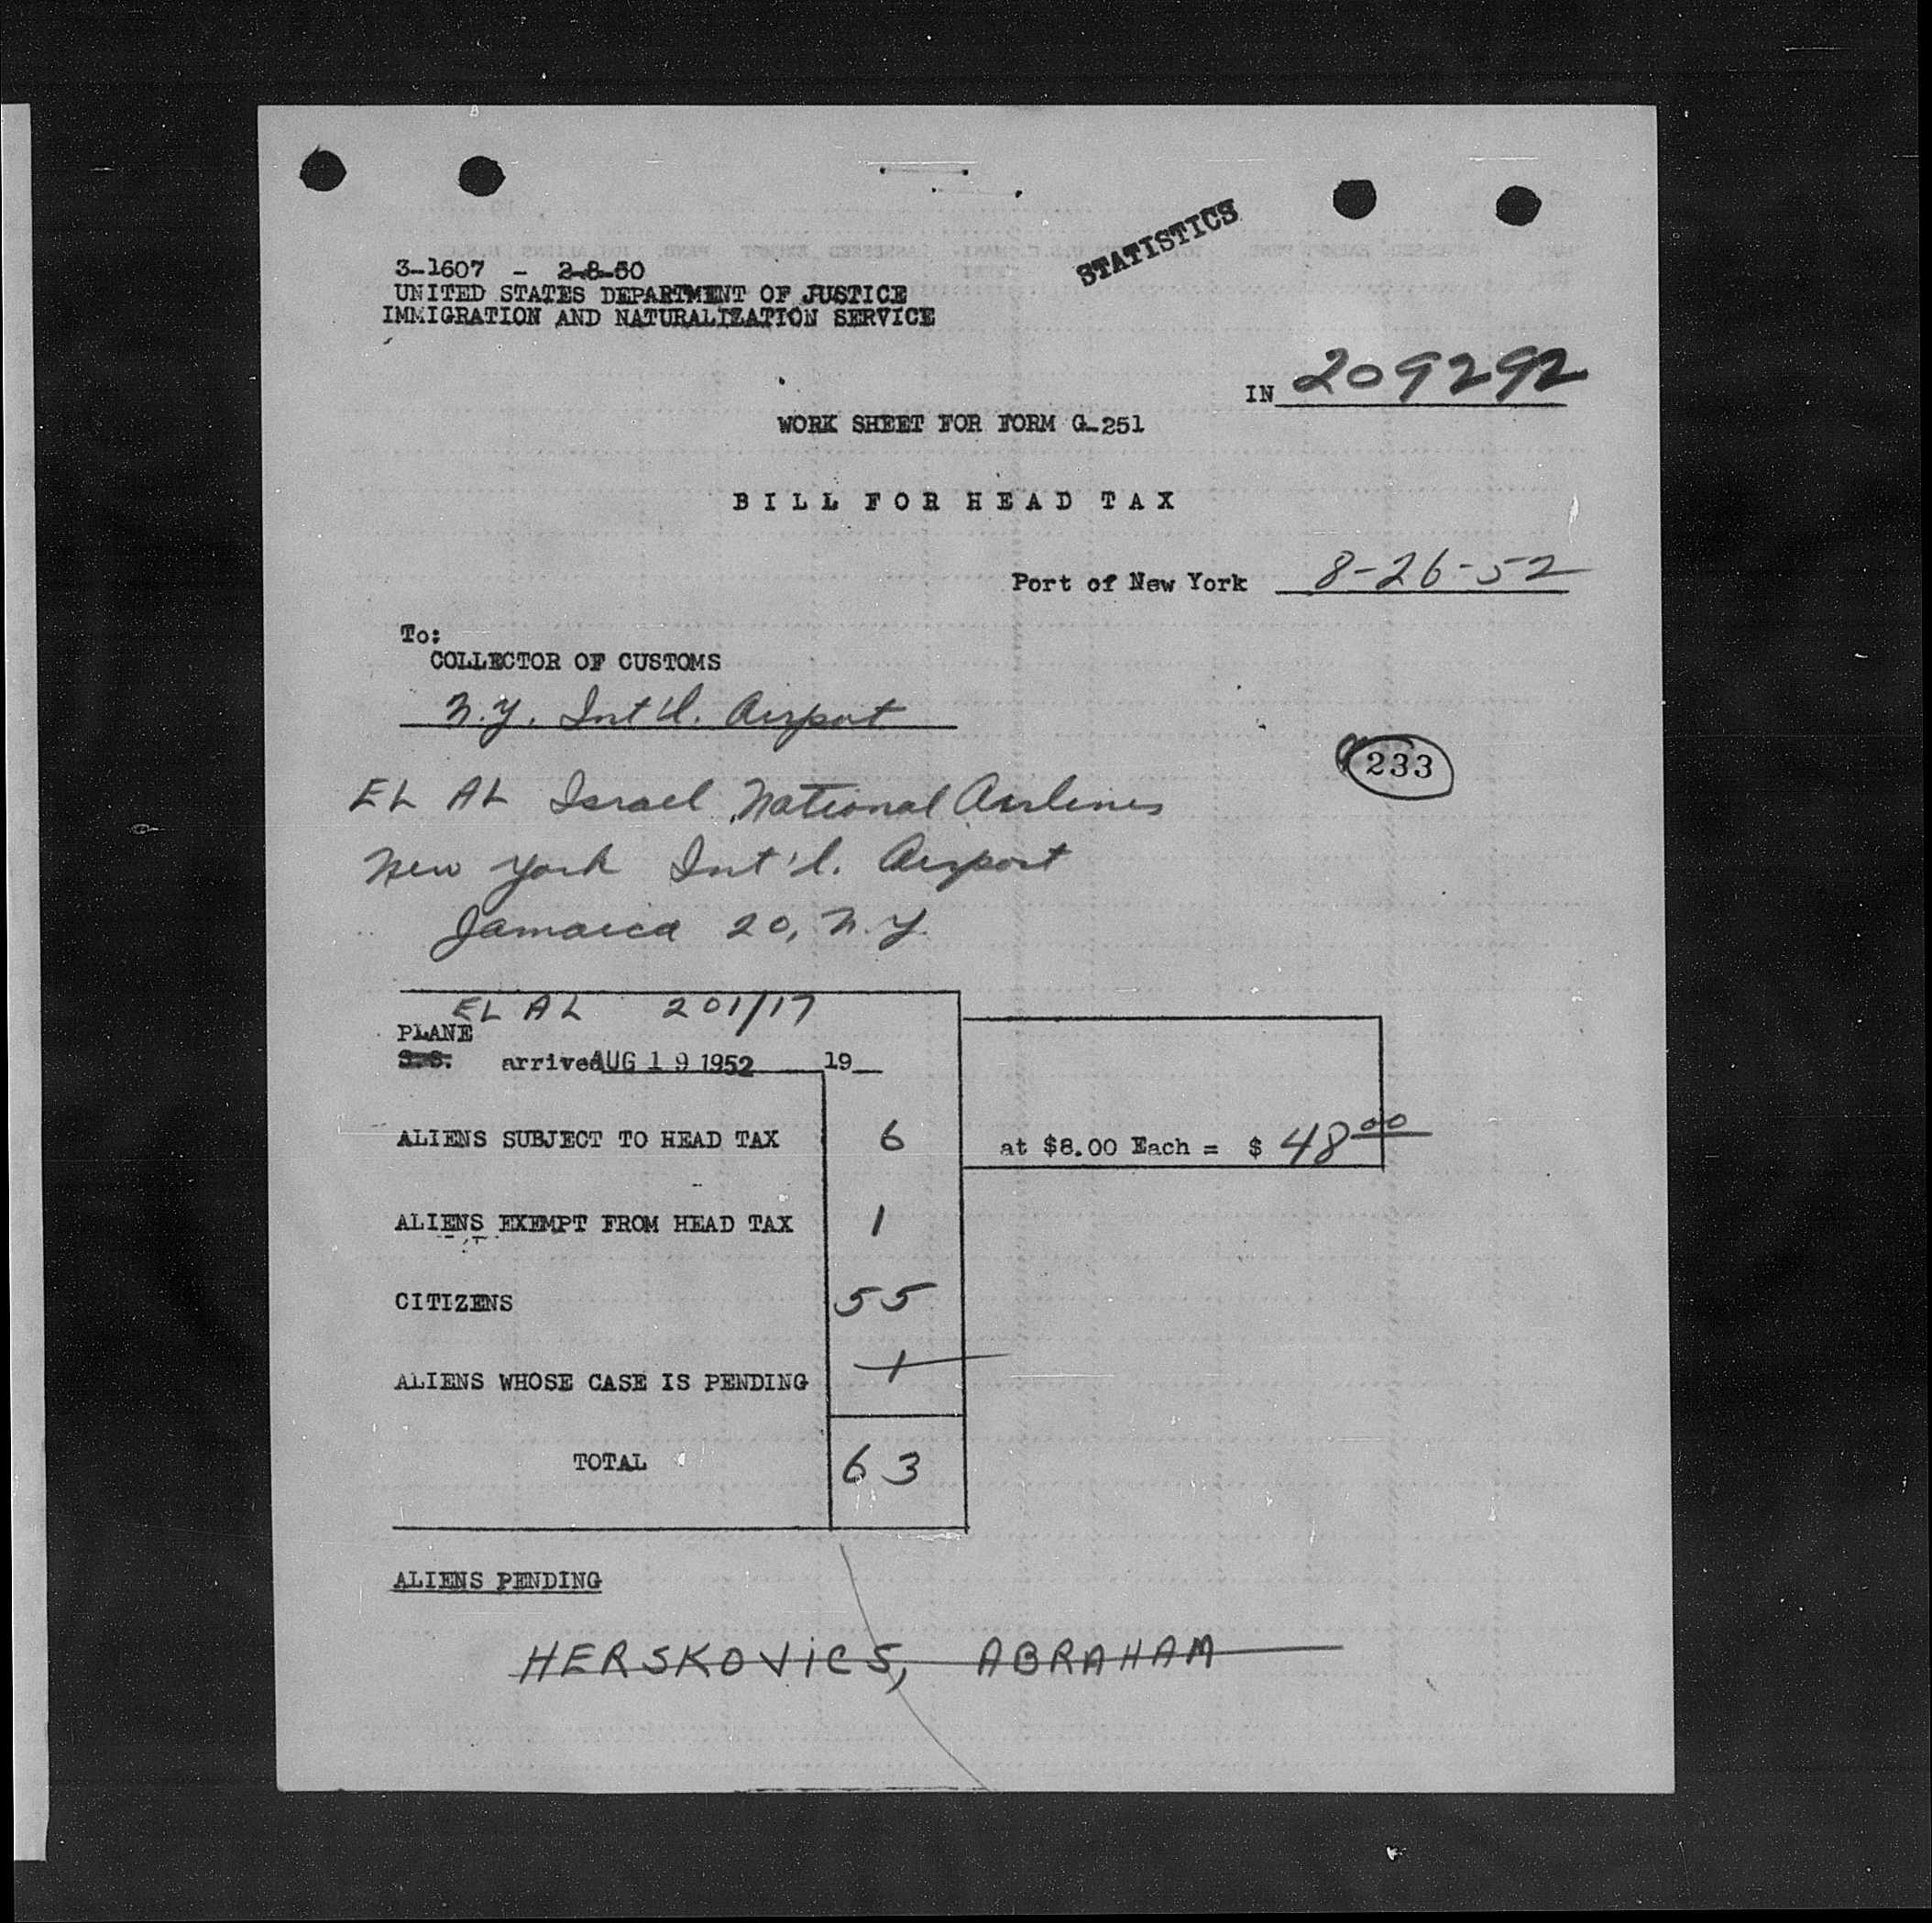 STATISTICS
3-1607 - 2-8-50
UNITED STATES DEPARTMENT OF JUSTICE
IMMIGRATION AND NATURALIZATION SERVICE
IN 209292
WORK SHEET FOR FORM G-251
BILL FOR HEAD TAX
Port of New York 8-26-52
To:
COLLECTOR OF CUSTOMS
N.Y. Int'l. Airport
233
EL AL Israel National Airlines
New York Int'l. Airport
Jamaica 20, N.Y.
EL AL 201/17
PLANE
S.S. arrived AUG 19 1952 19
ALIENS SUBJECT TO HEAD TAX 6 at $8.00 Each = $ 48 00
ALIENS EXEMPT FROM HEAD TAX 1
CITIZENS 55
ALIENS WHOSE CASE IS PENDING 1
TOTAL 63
ALIENS PENDING
HERSKOVICS, ABRAHAM